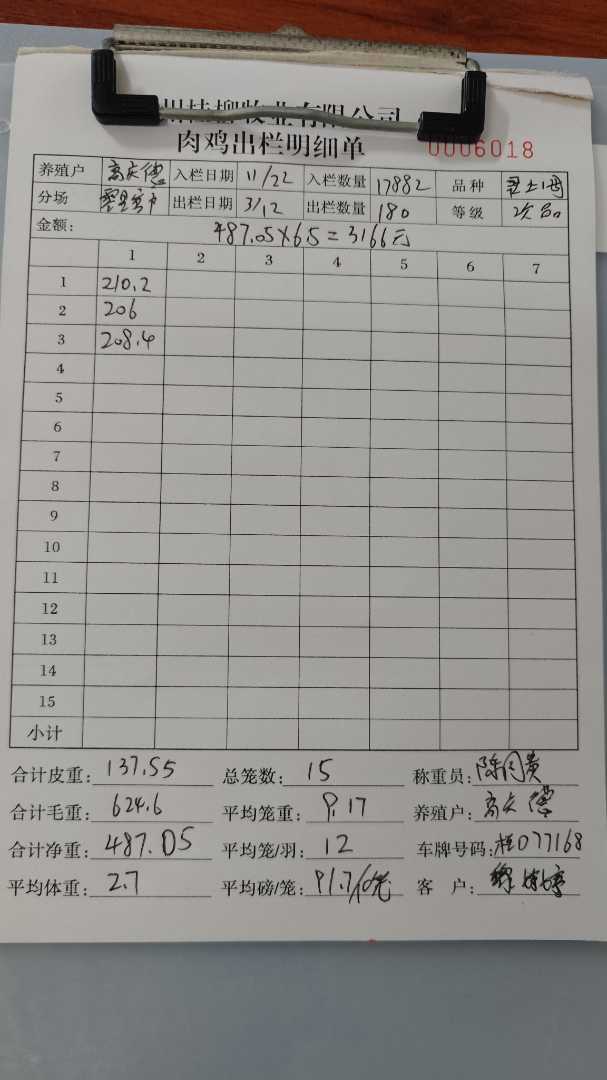 州桂柳牧业有限公司
肉鸡出栏明细单 0006018
养殖户 高庆德 入栏日期 11/22 入栏数量 17882 品种
分场 出栏日期 3/12 出栏数量 180 等级 次品
金额: 487.05×6.5=3166元
1 2 3 4 5 6 7
1 210.2
2 206
3 208.4
4
5
6
7
8
9
10
11
12
13
14
15
小计
合计皮重: 137.55 总笼数: 15 称重员: 陈同贵
合计毛重: 624.6 平均笼重: 9.17 养殖户: 高庆德
合计净重: 487.05 平均笼/羽: 12 车牌号码: 桂077168
平均体重: 2.7 平均磅/笼: 91.7 客 户: